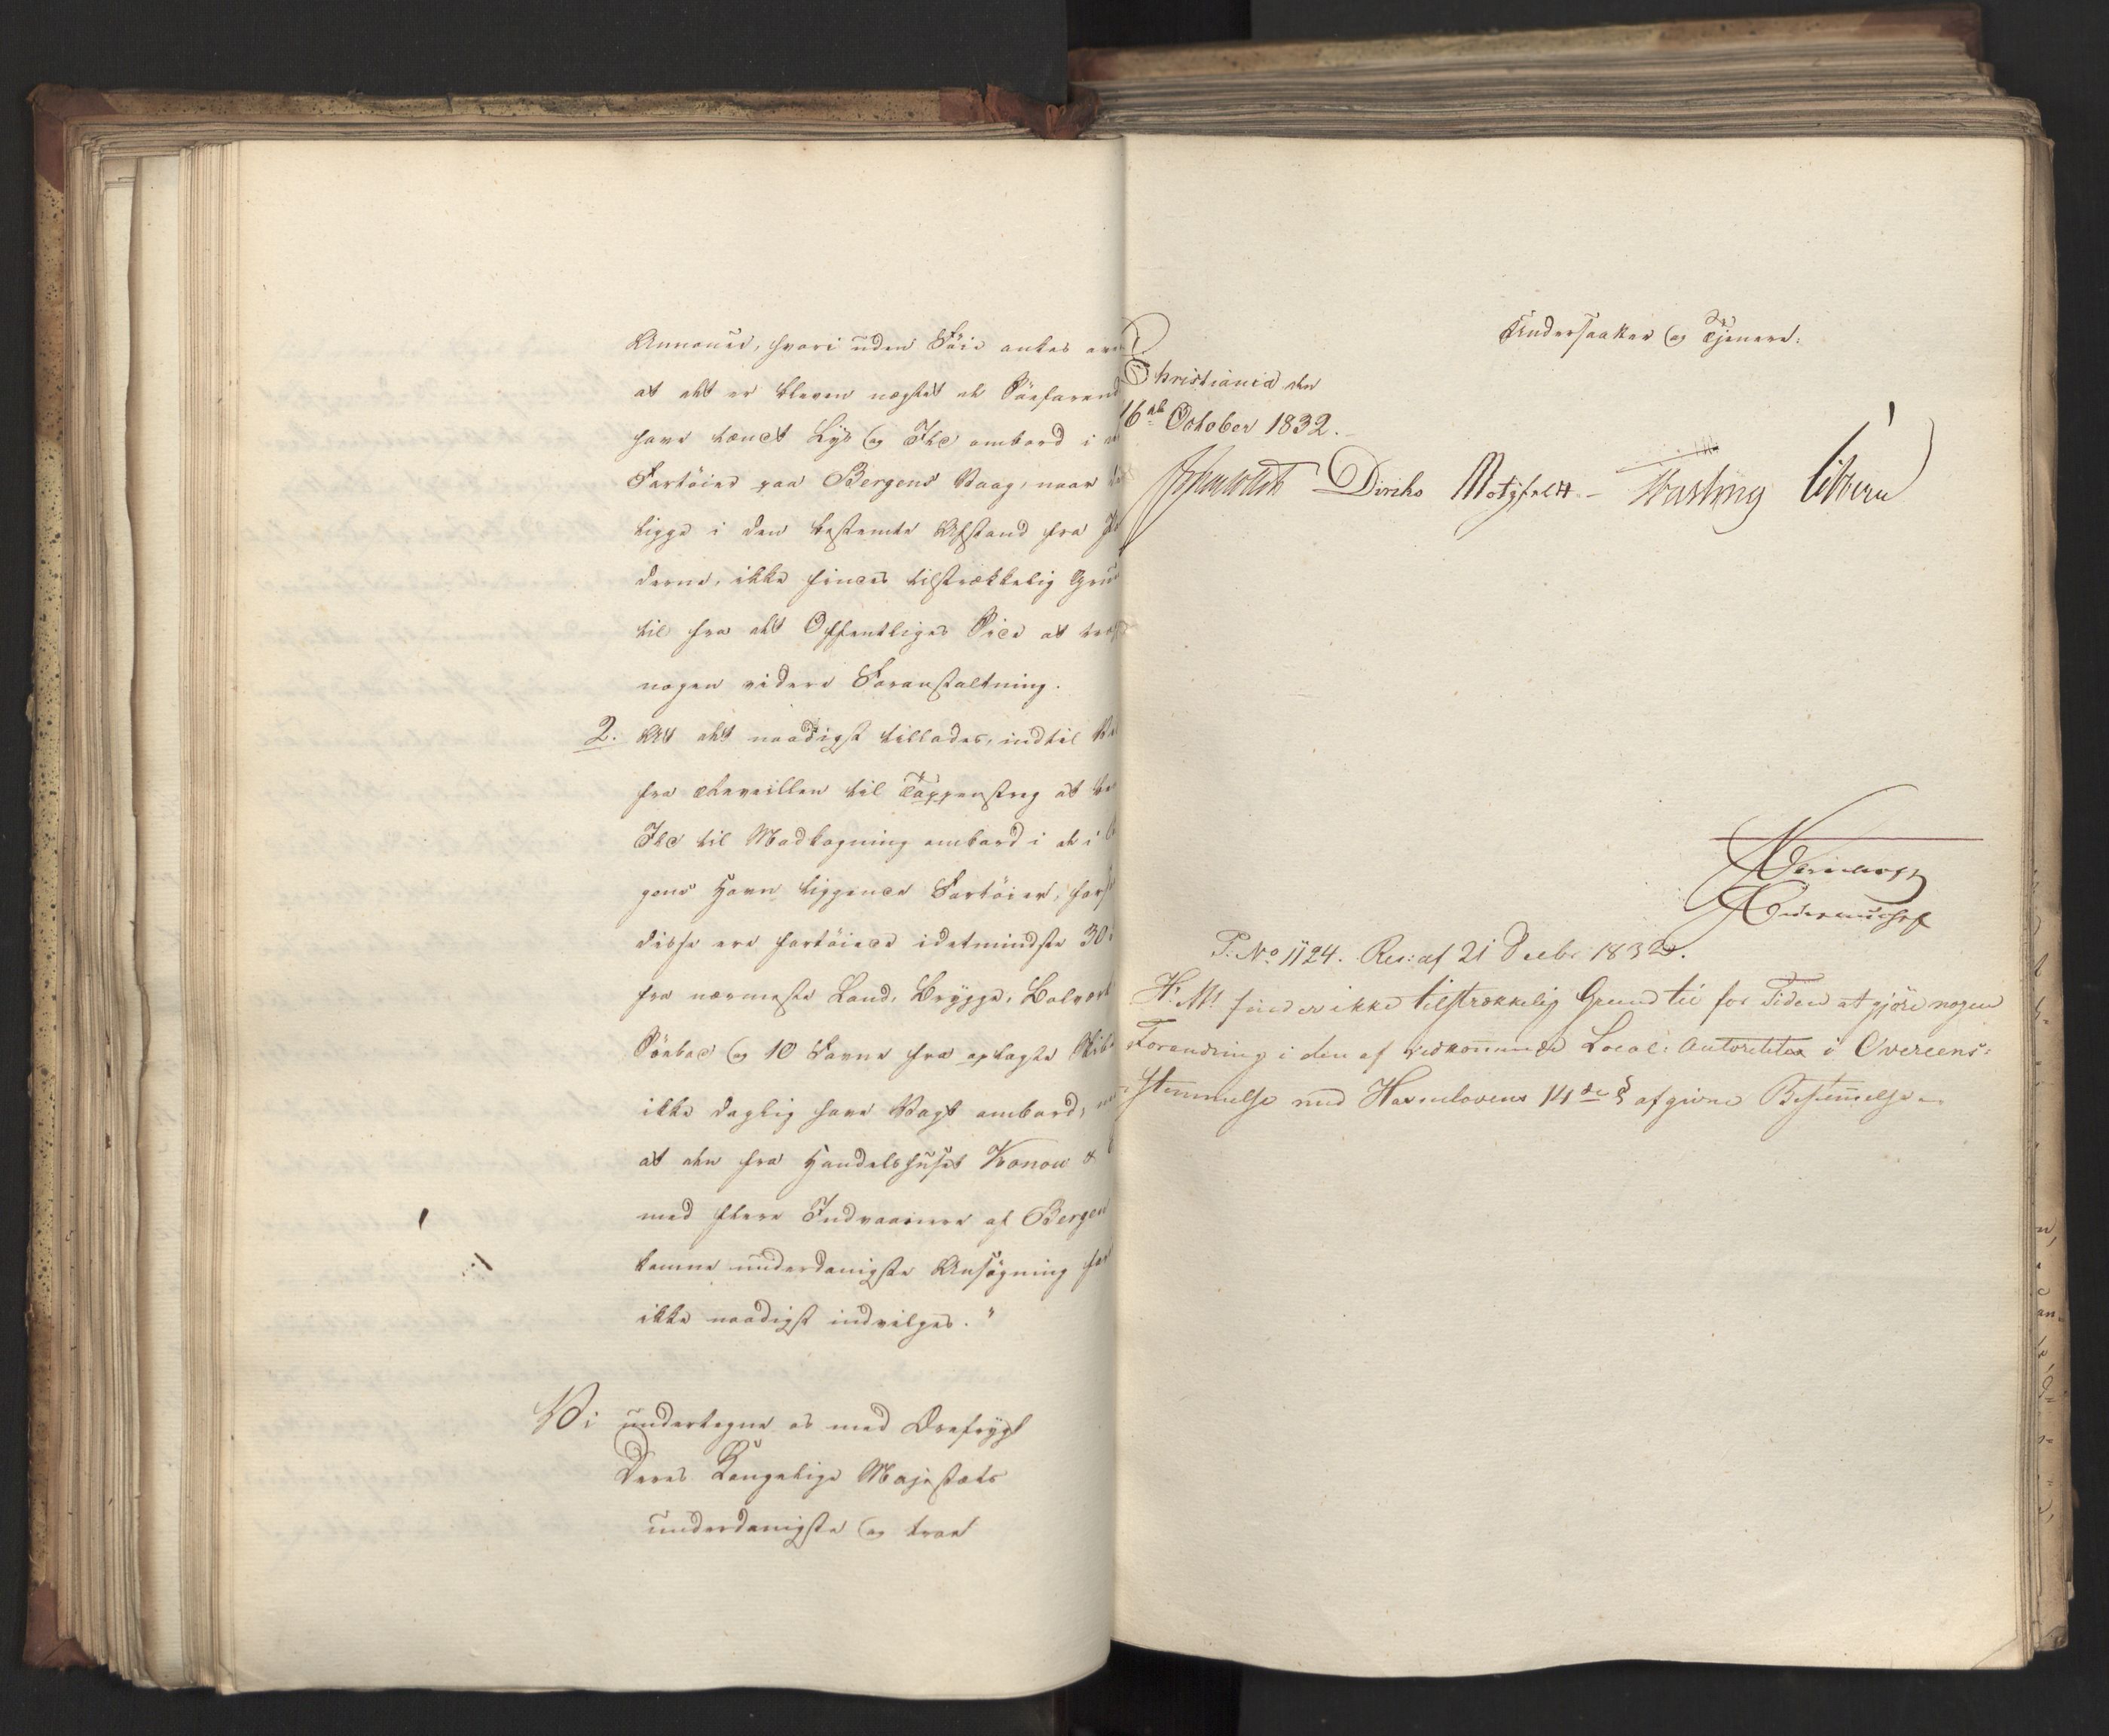 Annoncer, hvori uden Föie ankes over
at det er bleven negtet de Söefarend
have tændt Lys og Ild ombord i
Fartöier paa Bergens Vaag, naar
ligge i den bestemte Afstand fra
derne, ikke findes tilstrækkelig Grun
til fra det Offentliges Side at
nogen videre Foranstaltning.
2. At det naadigst tillades, indtil
fra Reveillen til Tappenstreg at
Ild til Madkogning ombord i de i
gens Havn liggende Fartöier,
disse ere fortöiede idetmindste 30
fra nærmeste Land, Brygge, Bolverk
Söebod og 10 Favne fra oplagte Skibe
ikke daglig have Vagt ombord,
at den fra Handelshuset Konow &
med flere Indvaanere af Bergen
komne underdanigste Ansögning
ikke naadigst indvilges."
Vi undertegne os med Ærefrygt
Deres Kongelige Majestæts
underdanigste og troe
Undersaatter og Tjenere.
Christiania den
16de October 1832.
Diriks Motzfeldt Fasting Sibbern
P. No 1124. Res: af 21 Decbr 1832.
H. M. finder ikke tilstrækkelig Grund til for Tiden at gjöre nogen
Forandring i den af vedkommende Local-Autoriteter i Overeens-
stemmelse med Havnelovens 14de § afgivne Bestemmelse